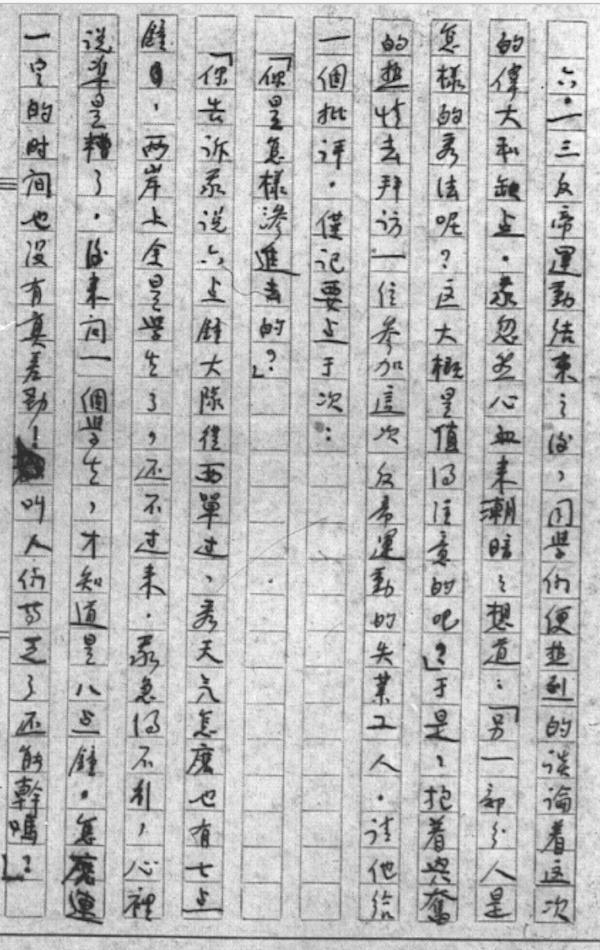 六.一三反帝運動结束之後，同學们便熱烈的談論着这次
的偉大和缺点．我忽然心血来潮暗々想道：「另一部分人是
怎樣的看法呢？这大概是值得注意的吧？」于是，抱着兴奮
的热情去拜访一位参加這次反帝運動的失業工人．请他给
一個批评．僅记要点于次：
「你是怎樣滲進去的？」
「你告诉我说六点鐘大隊從西單过，看天气怎麽也有七点
鐘，两岸上全是學生了，还不过来．我急得不利，心裡
说準是糟了．後来问一個學生，才知道是八点鐘．怎麽連
一定的时间也没有真差勁！叫人们等乏了还能幹嗎？」